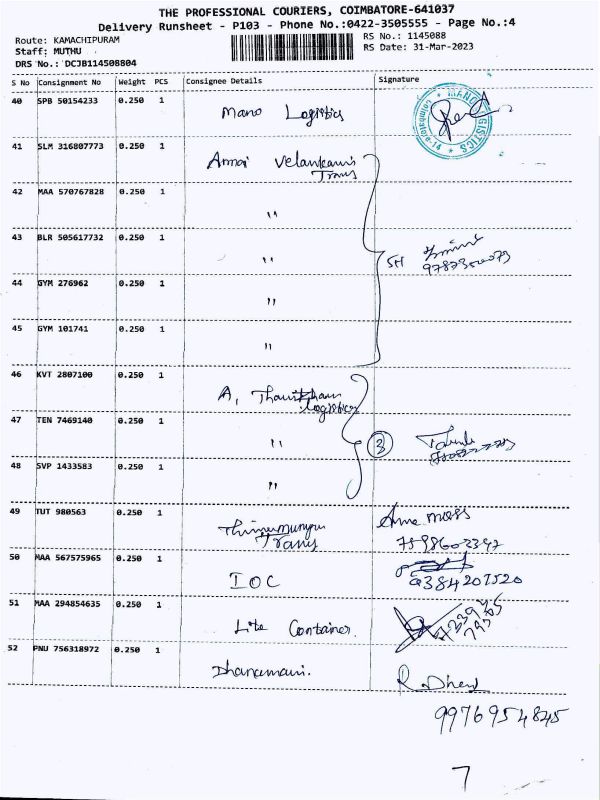 THE PROFESSIONAL COURIERS, COIMBATORE-641037
Delivery Runsheet - P103 - Phone No.:0422-3505555 - Page No.:4
Route: KAMACHIPURAM
Staff: MUTHU
DRS No.: DCJB114508804
RS No.: 1145088
RS Date: 31-Mar-2023
S No Consignment No Weight PCS Consignee Details Signature
40 SPB 50154233 0.250 1 Mano Logistics
MANO LOGISTICS
Coimbatore-14
41 SLM 316807773 0.250 1 Annai Velankanni
Trans
42 MAA 570767828 0.250 1 "
43 BLR 505617732 0.250 1 "
5H
44 GYM 276962 0.250 1 "
45 GYM 101741 0.250 1 "
46 KVT 2807100 0.250 1 A, 
Logistics
47 TEN 7469140 0.250 1 "
3
48 SVP 1433583 0.250 1 "
49 TUT 980563 0.250 1
Trans
50 MAA 567575965 0.250 1 IOC
9384207520
51 MAA 294854635 0.250 1 Lite Container
52 PNU 756318972 0.250 1 Dhanamani.
R. 
9976954845
7